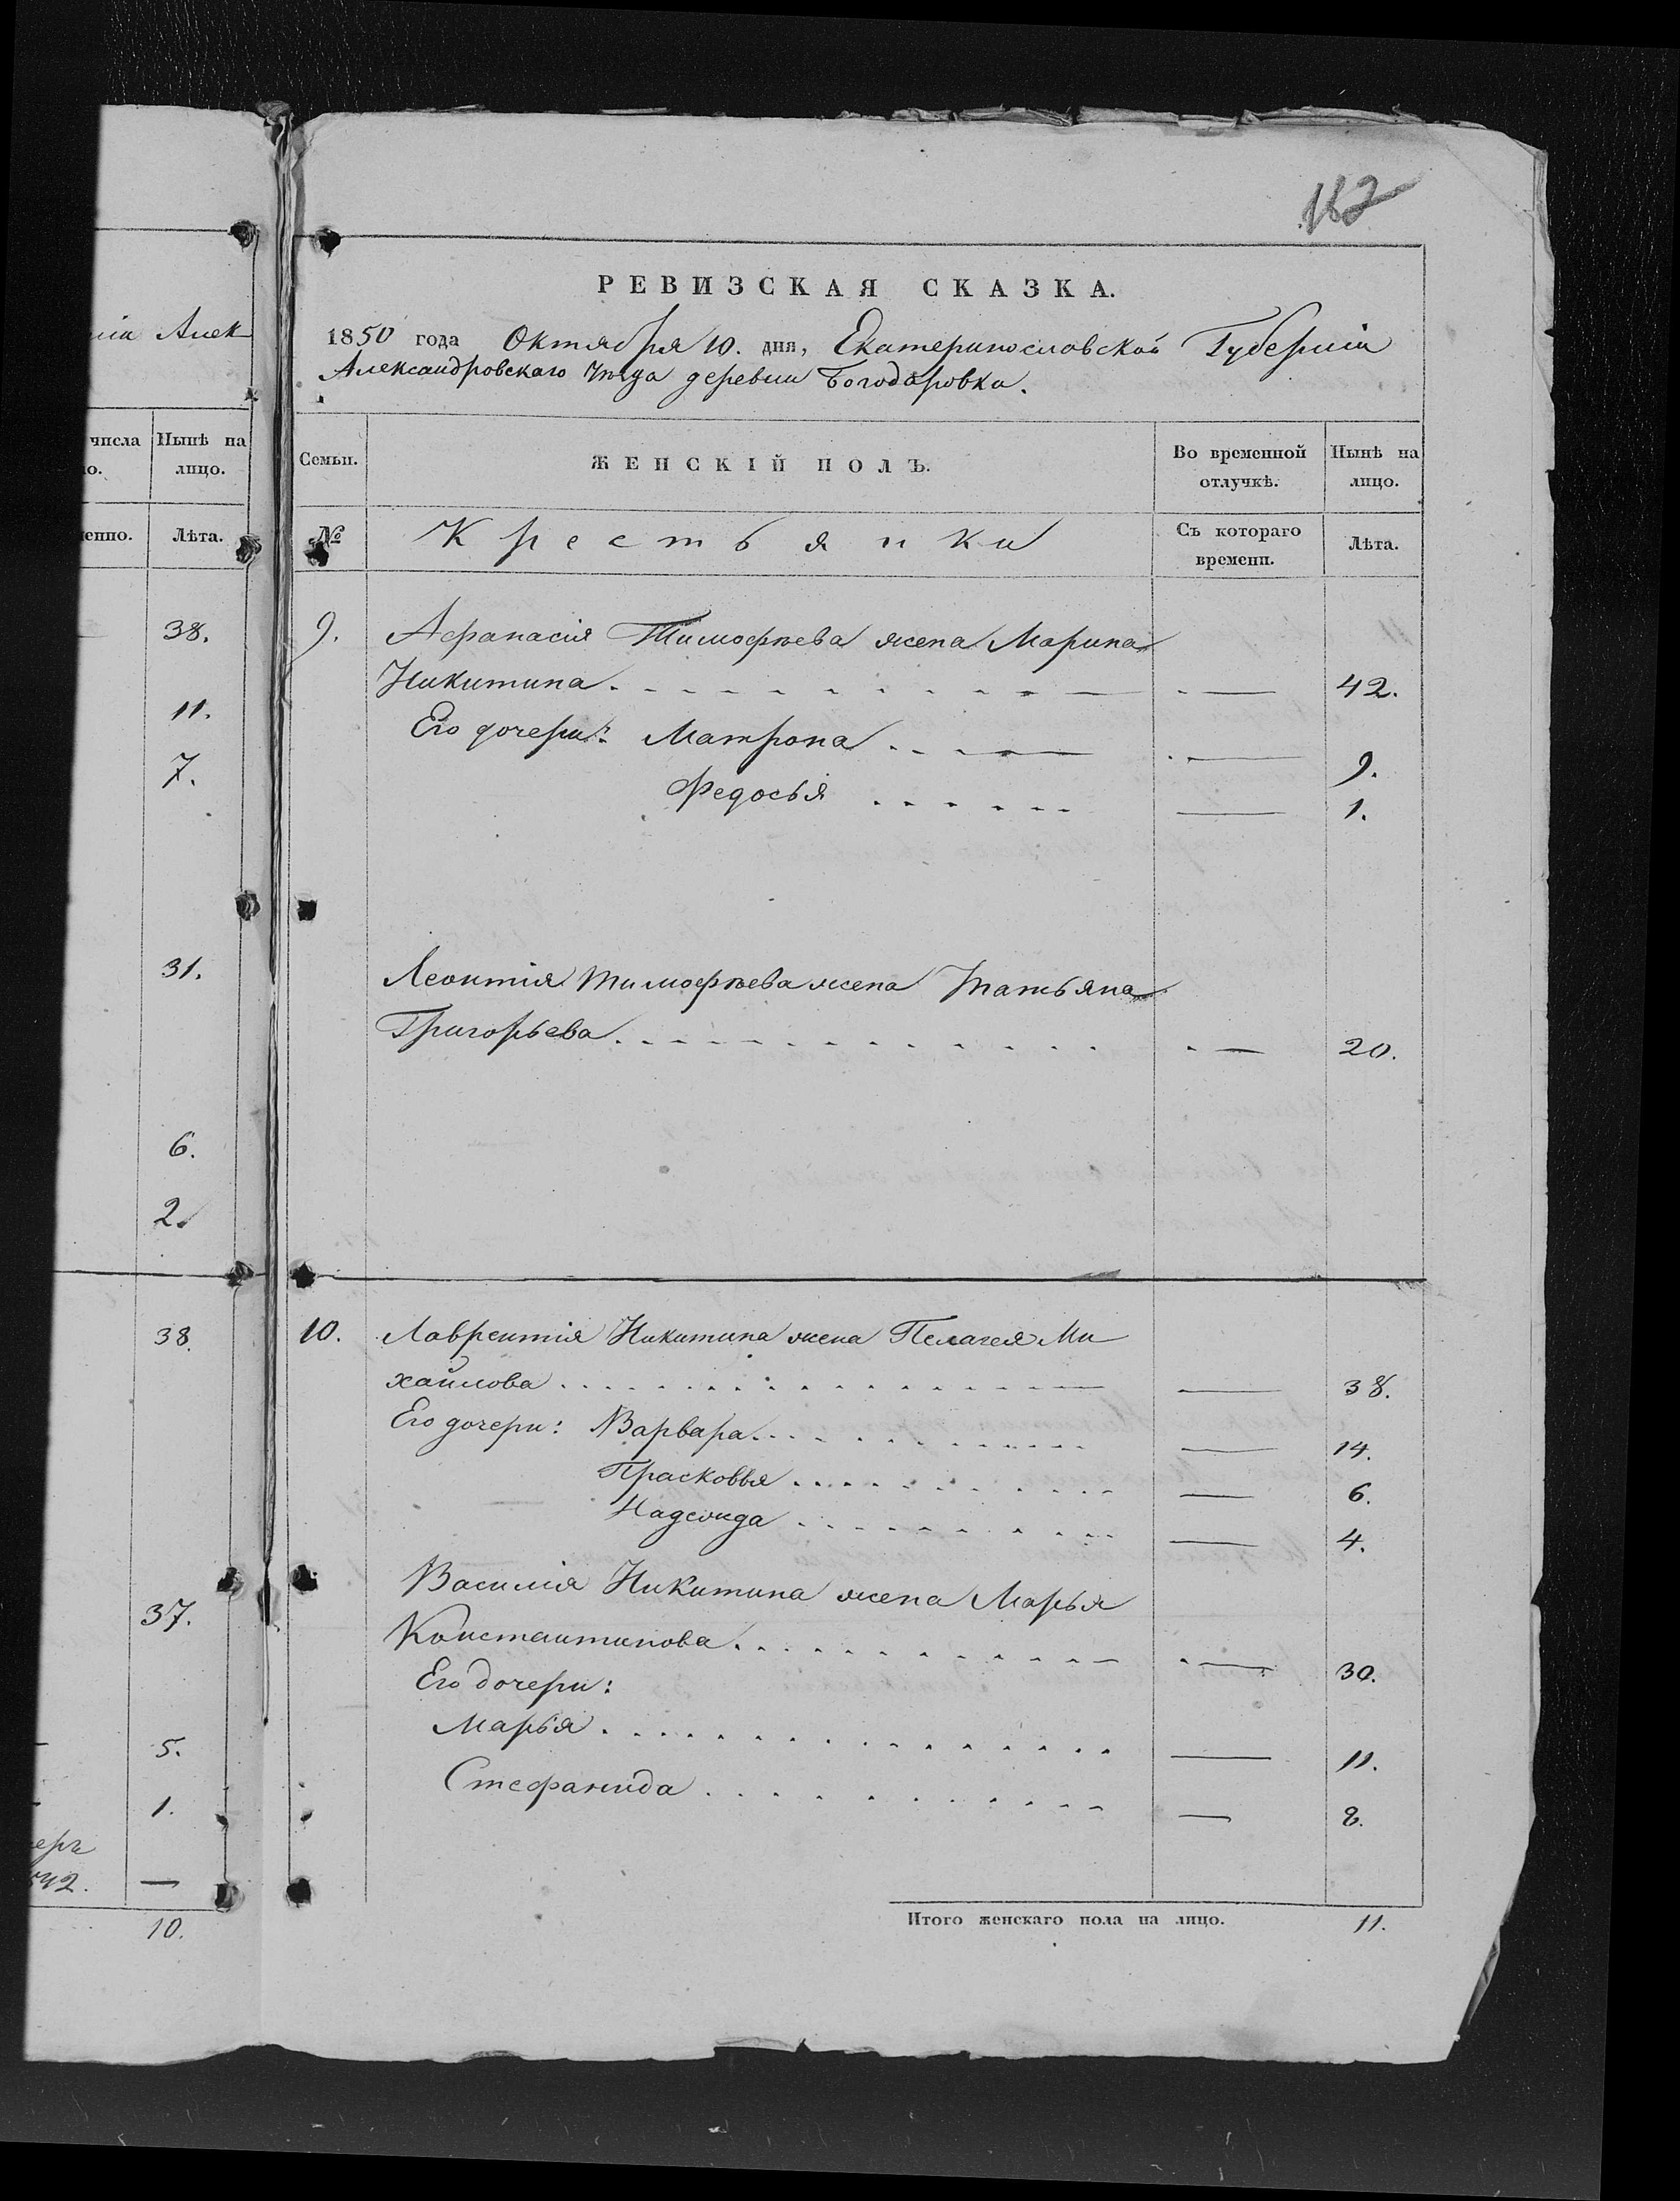 162
РЕВИЗСКАЯ СКАЗКА.
1850 года Октября 10. дня, Екатеринославской Губерніи
Александровскаго Уѣзда деревни Богодаровки.
Семьи.
ЖЕНСКІЙ ПОЛЪ.
Во временной отлучкѣ.
Нынѣ на лицо.
№
Крестьянки
Съ котораго времени.
Лѣта.
9. Афанасія Тимофѣева жена Марина
Никитина. 42.
Его дочери: Матрона 9.
Федосья 1.
Леонтія Тимофѣева жена Татьяна
Григорьева. 20.
10. Лаврентія Никитина жена Пелагея Ми
хайлова 38.
Его дочери: Варвара 14.
Прасковья 6.
Надежда 4.
Василія Никитина жена Марья
Константинова. 30.
Его дочери:
Марья 11.
Стефанида 8.
Итого женскаго пола на лицо. 11.
ніи Алек
числа
Нынѣ на
лицо.
Лѣта.
38.
11.
7.
31.
6.
2.
38.
37.
5.
1.
10.